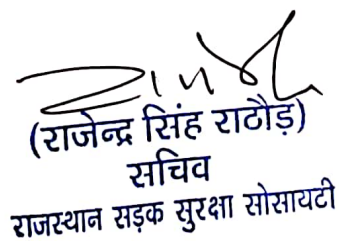 (राजेन्द्र सिंह राठौड़)
सचिव
राजस्थान सड़क सुरक्षा सोसायटी